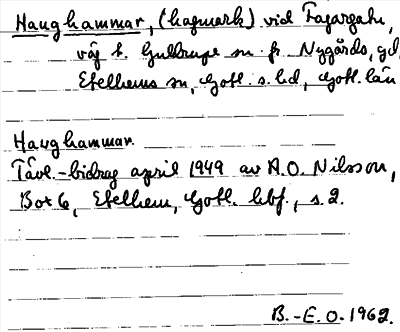 Haughammar, (hagmark) vid Fagargahn,
väg t. Gullrupe sn. fr. Nygårds, gd,
Etelhems sn, Gotl. s. hd, Gotl. län
Haughammar
Tävl.-bidrag april 1949 av A.O. Nilsson,
Box 6, Etelhem, Gotl. hbf., s. 2.
B.-E. O. 1962.